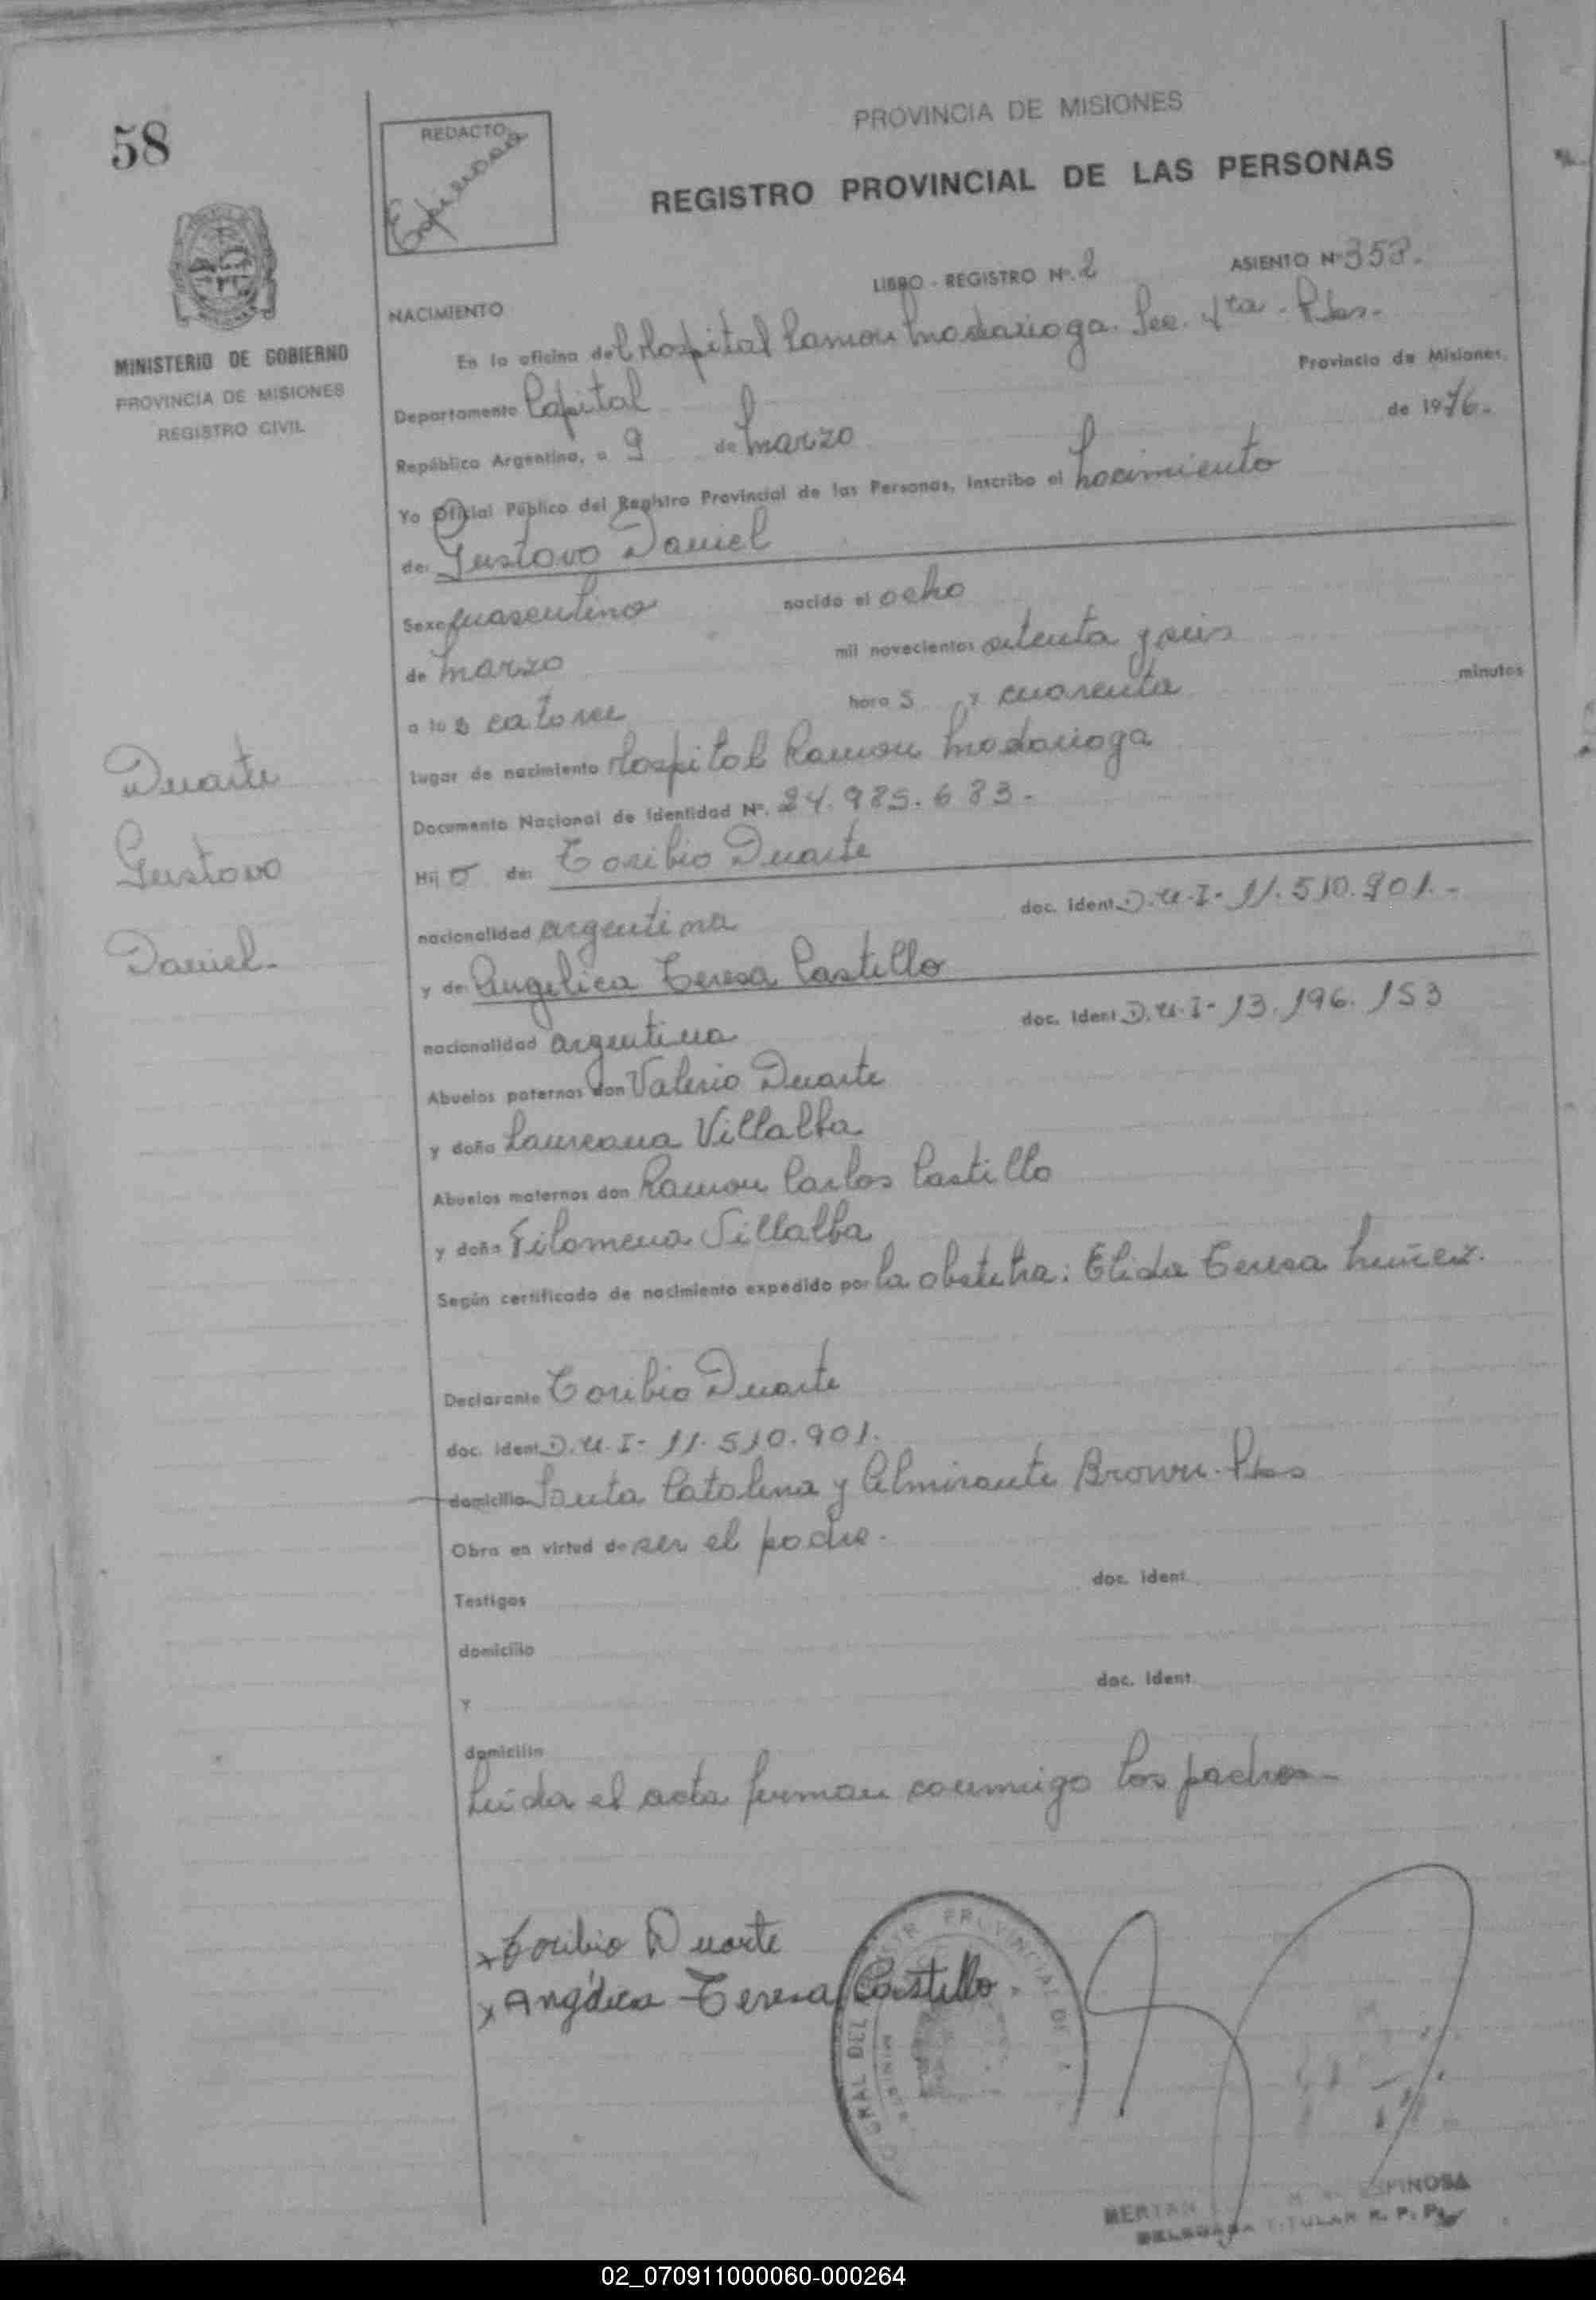 58
REDACTO
Espinosa
PROVINCIA DE MISIONES
REGISTRO PROVINCIAL DE LAS PERSONAS
MINISTERIO DE GOBIERNO
PROVINCIA DE MISIONES
REGISTRO CIVIL
LIBRO - REGISTRO Nº. 2 ASIENTO Nº 353.
NACIMIENTO
En la oficina del Hospital Ramon Madariaga. Sec. 4ta - Pdas.-
Departamento Capital Provincia de Misiones,
República Argentina, a 9 de Marzo de 1976.-
Yo Oficial Público del Registro Provincial de las Personas, inscribo el Nacimiento
de: Gustavo Daniel
Sexo masculino nacido el ocho
de Marzo mil novecientos setenta y seis
a las catorce horas y cuarenta minutos
Lugar de nacimiento Hospital Ramon Madariaga
Documento Nacional de Identidad Nº. 24.985.683.-
Hijo de: Toribio Duarte
nacionalidad argentina doc. ident. D.U.I- 11.510.901.-
y de Angelica Teresa Castillo
nacionalidad argentina doc. ident D.U.I- 13.196.153
Abuelos paternos don Valerio Duarte
y doña Laureana Villalba
Abuelos maternos don Ramon Carlos Castillo
y doña Filomena Villalba
Según certificado de nacimiento expedido por la obstetra: Elida Teresa Nuñez.
Declarante Toribio Duarte
doc. ident D.U.I- 11.510.901.
domicilio Santa Catalina y Almirante Brown. Pdas
Obra en virtud de ser el padre.
Testigos doc. ident.
domicilio
Y doc. ident.
domicilio
Leída el acta firman conmigo los padres-
Duarte
Gustavo
Daniel-
x Toribio Duarte
x Angélica Teresa Castillo
PROVINCIAL DE
ESPINOSA
TITULAR R. P. P.
02_070911000060-000264